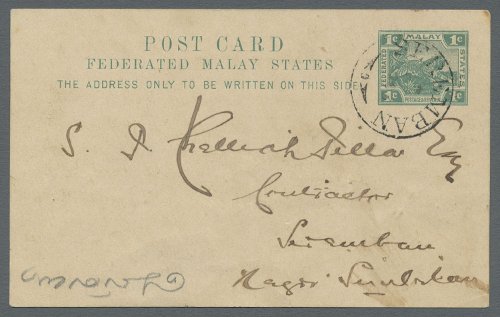 POST CARD
FEDERATED MALAY STATES
THE ADDRESS ONLY TO BE WRITTEN ON THIS SIDE
1c MALAY 1c
FEDERATED STATES
POSTAGE & REVENUE
1c 1c
SEREMBAN
S. I. Chelliah Pillai Esq
Contractor
Seremban
Negri Sembilan